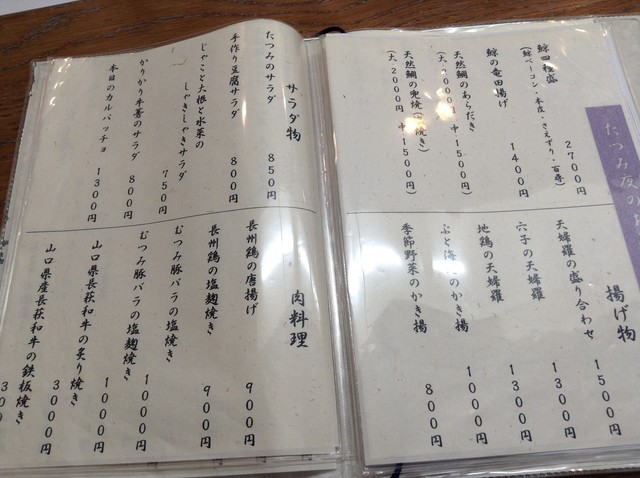 たつみ夜の
鯨四
盛
2700円
(鯨ベーコン・本皮・さえずり・百尋)
鯨の竜田揚げ
1400円
天然鯛のあらだき
(大・2000円 中・1500円)
天然鯛の兜焼(
焼き)
(大・2000円 中・1500円)
揚げ物
天婦羅の盛り合わせ
1500円
子の天婦羅
1300円
地鶏の天婦羅
1300円
ぶと海
のかき揚
1000円
季節野菜のかき揚
800円
サラダ物
たつみのサラダ
850円
手作り豆腐サラダ
800円
じゃこと大根と水菜の
しゃきしゃきサラダ
750円
かりかり牛蒡のサラダ
800円
本日のカルパッチョ
1300円
肉料理
長州鶏の唐揚げ
900円
長州鶏の塩麹焼き
900円
むつみ豚バラの塩焼き
1000円
むつみ豚バラの塩麹焼き
1000円
山口県長萩和牛の炙り焼き
3000円
山口県産長萩和牛の鉄板焼き
300